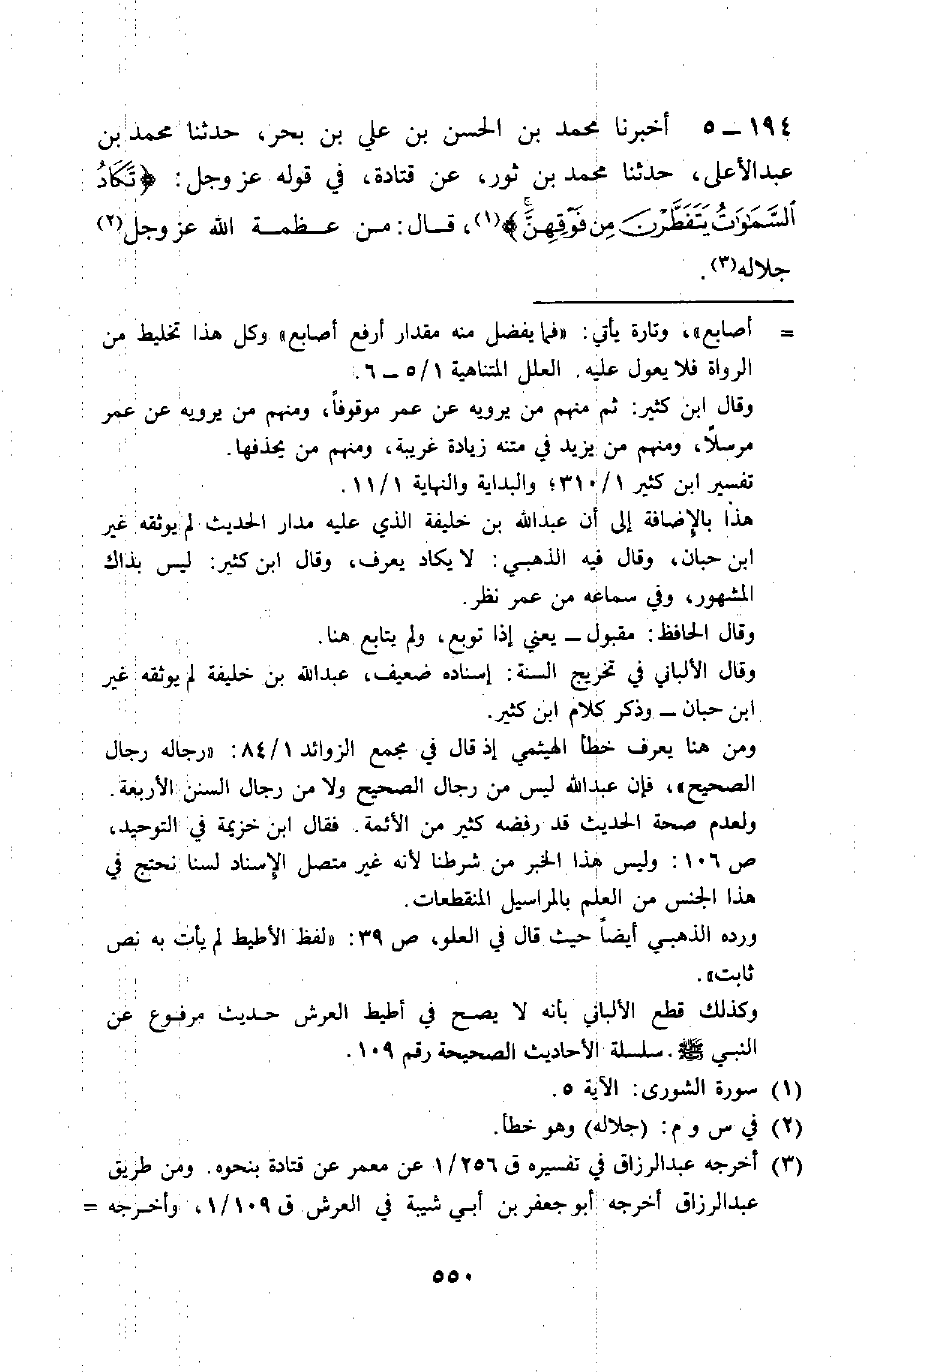 ١٩٤ ــ ٥ أخبرنا محمد بن الحسن بن علي بن بحر، حدثنا محمد بن
عبدالأعلى، حدثنا محمد بن ثور، عن قتادة، في قوله عز وجل: ﴿تَكَادُ
السَّمَٰوَٰتُ يَتَفَطَّرْنَ مِن فَوْقِهِنَّ﴾(١)، قـال: مـن عـظمـة الله عز وجل(٢)
جلاله(٣).
= أصابع»، وتارة يأتي: «فما يفضل منه مقدار أرفع أصابع» وكل هذا تخليط من
الرواة فلا يعول عليه. العلل المتناهية ٥/١ ــ ٦.
وقال ابن كثير: ثم منهم من يرويه عن عمر موقوفاً، ومنهم من يرويه عن عمر
مرسلاً، ومنهم من يزيد في متنه زيادة غريبة، ومنهم من يحذفها.
تفسير ابن كثير ٣١٠/١؛ والبداية والنهاية ١١/١.
هذا بالإضافة إلى أن عبدالله بن خليفة الذي عليه مدار الحديث لم يوثقه غير
ابن حبان، وقال فيه الذهبـي: لا يكاد يعرف، وقال ابن كثير: ليس بذاك
المشهور، وفي سماعه من عمر نظر.
وقال الحافظ: مقبول ــ يعني إذا توبع، ولم يتابع هنا.
وقال الألباني في تخريج السنة: إسناده ضعيف، عبدالله بن خليفة لم يوثقه غير
ابن حبان ــ وذكر كلام ابن كثير.
ومن هنا يعرف خطأ الهيثمي إذ قال في مجمع الزوائد ٨٤/١: «رجاله رجال
الصحيح»، فإن عبدالله ليس من رجال الصحيح ولا من رجال السنن الأربعة.
ولعدم صحة الحديث قد رفضه كثير من الأئمة. فقال ابن خزيمة في التوحيد،
ص ١٠٦: وليس هذا الخبر من شرطنا لأنه غير متصل الإسناد لسنا نحتج في
هذا الجنس من العلم بالمراسيل المنقطعات.
ورده الذهبـي أيضاً حيث قال في العلو، ص ٣٩: «لفظ الأطيط لم يأت به نص
ثابت».
وكذلك قطع الألباني بأنه لا يصـح في أطيط العرش حـديث مرفـوع عن
النبـي ﷺ. سلسلة الأحاديث الصحيحة رقم ١٠٩.
(١) سورة الشورى: الآية ٥.
(٢) في س و م: (جلاله) وهو خطأ.
(٣) أخرجه عبدالرزاق في تفسيره ق ١/٢٥٦ عن معمر عن قتادة بنحوه. ومن طريق
عبدالرزاق أخرجه أبو جعفر بن أبـي شيبة في العرش ق ١/١٠٩، وأخـرجه =
٥٥٠